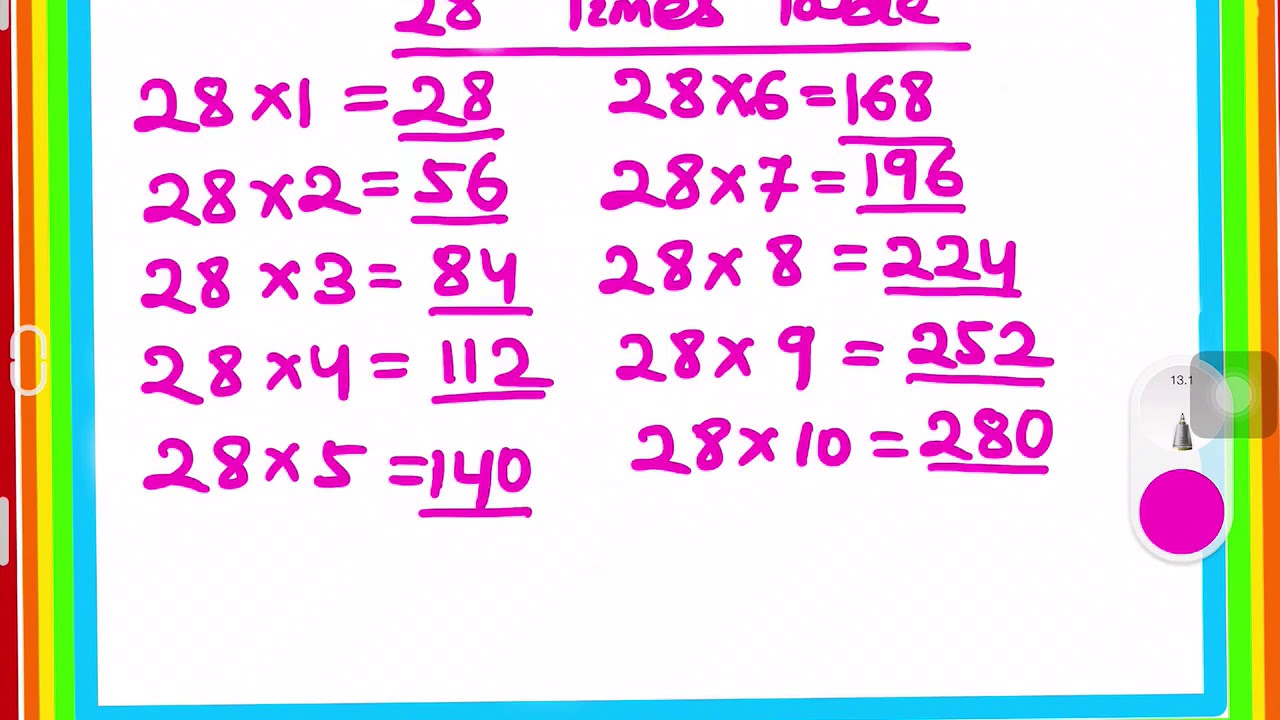 28 Times Table
28 × 1 = 28
28 × 2 = 56
28 × 3 = 84
28 × 4 = 112
28 × 5 = 140
28 × 6 = 168
28 × 7 = 196
28 × 8 = 224
28 × 9 = 252
28 × 10 = 280
13.1